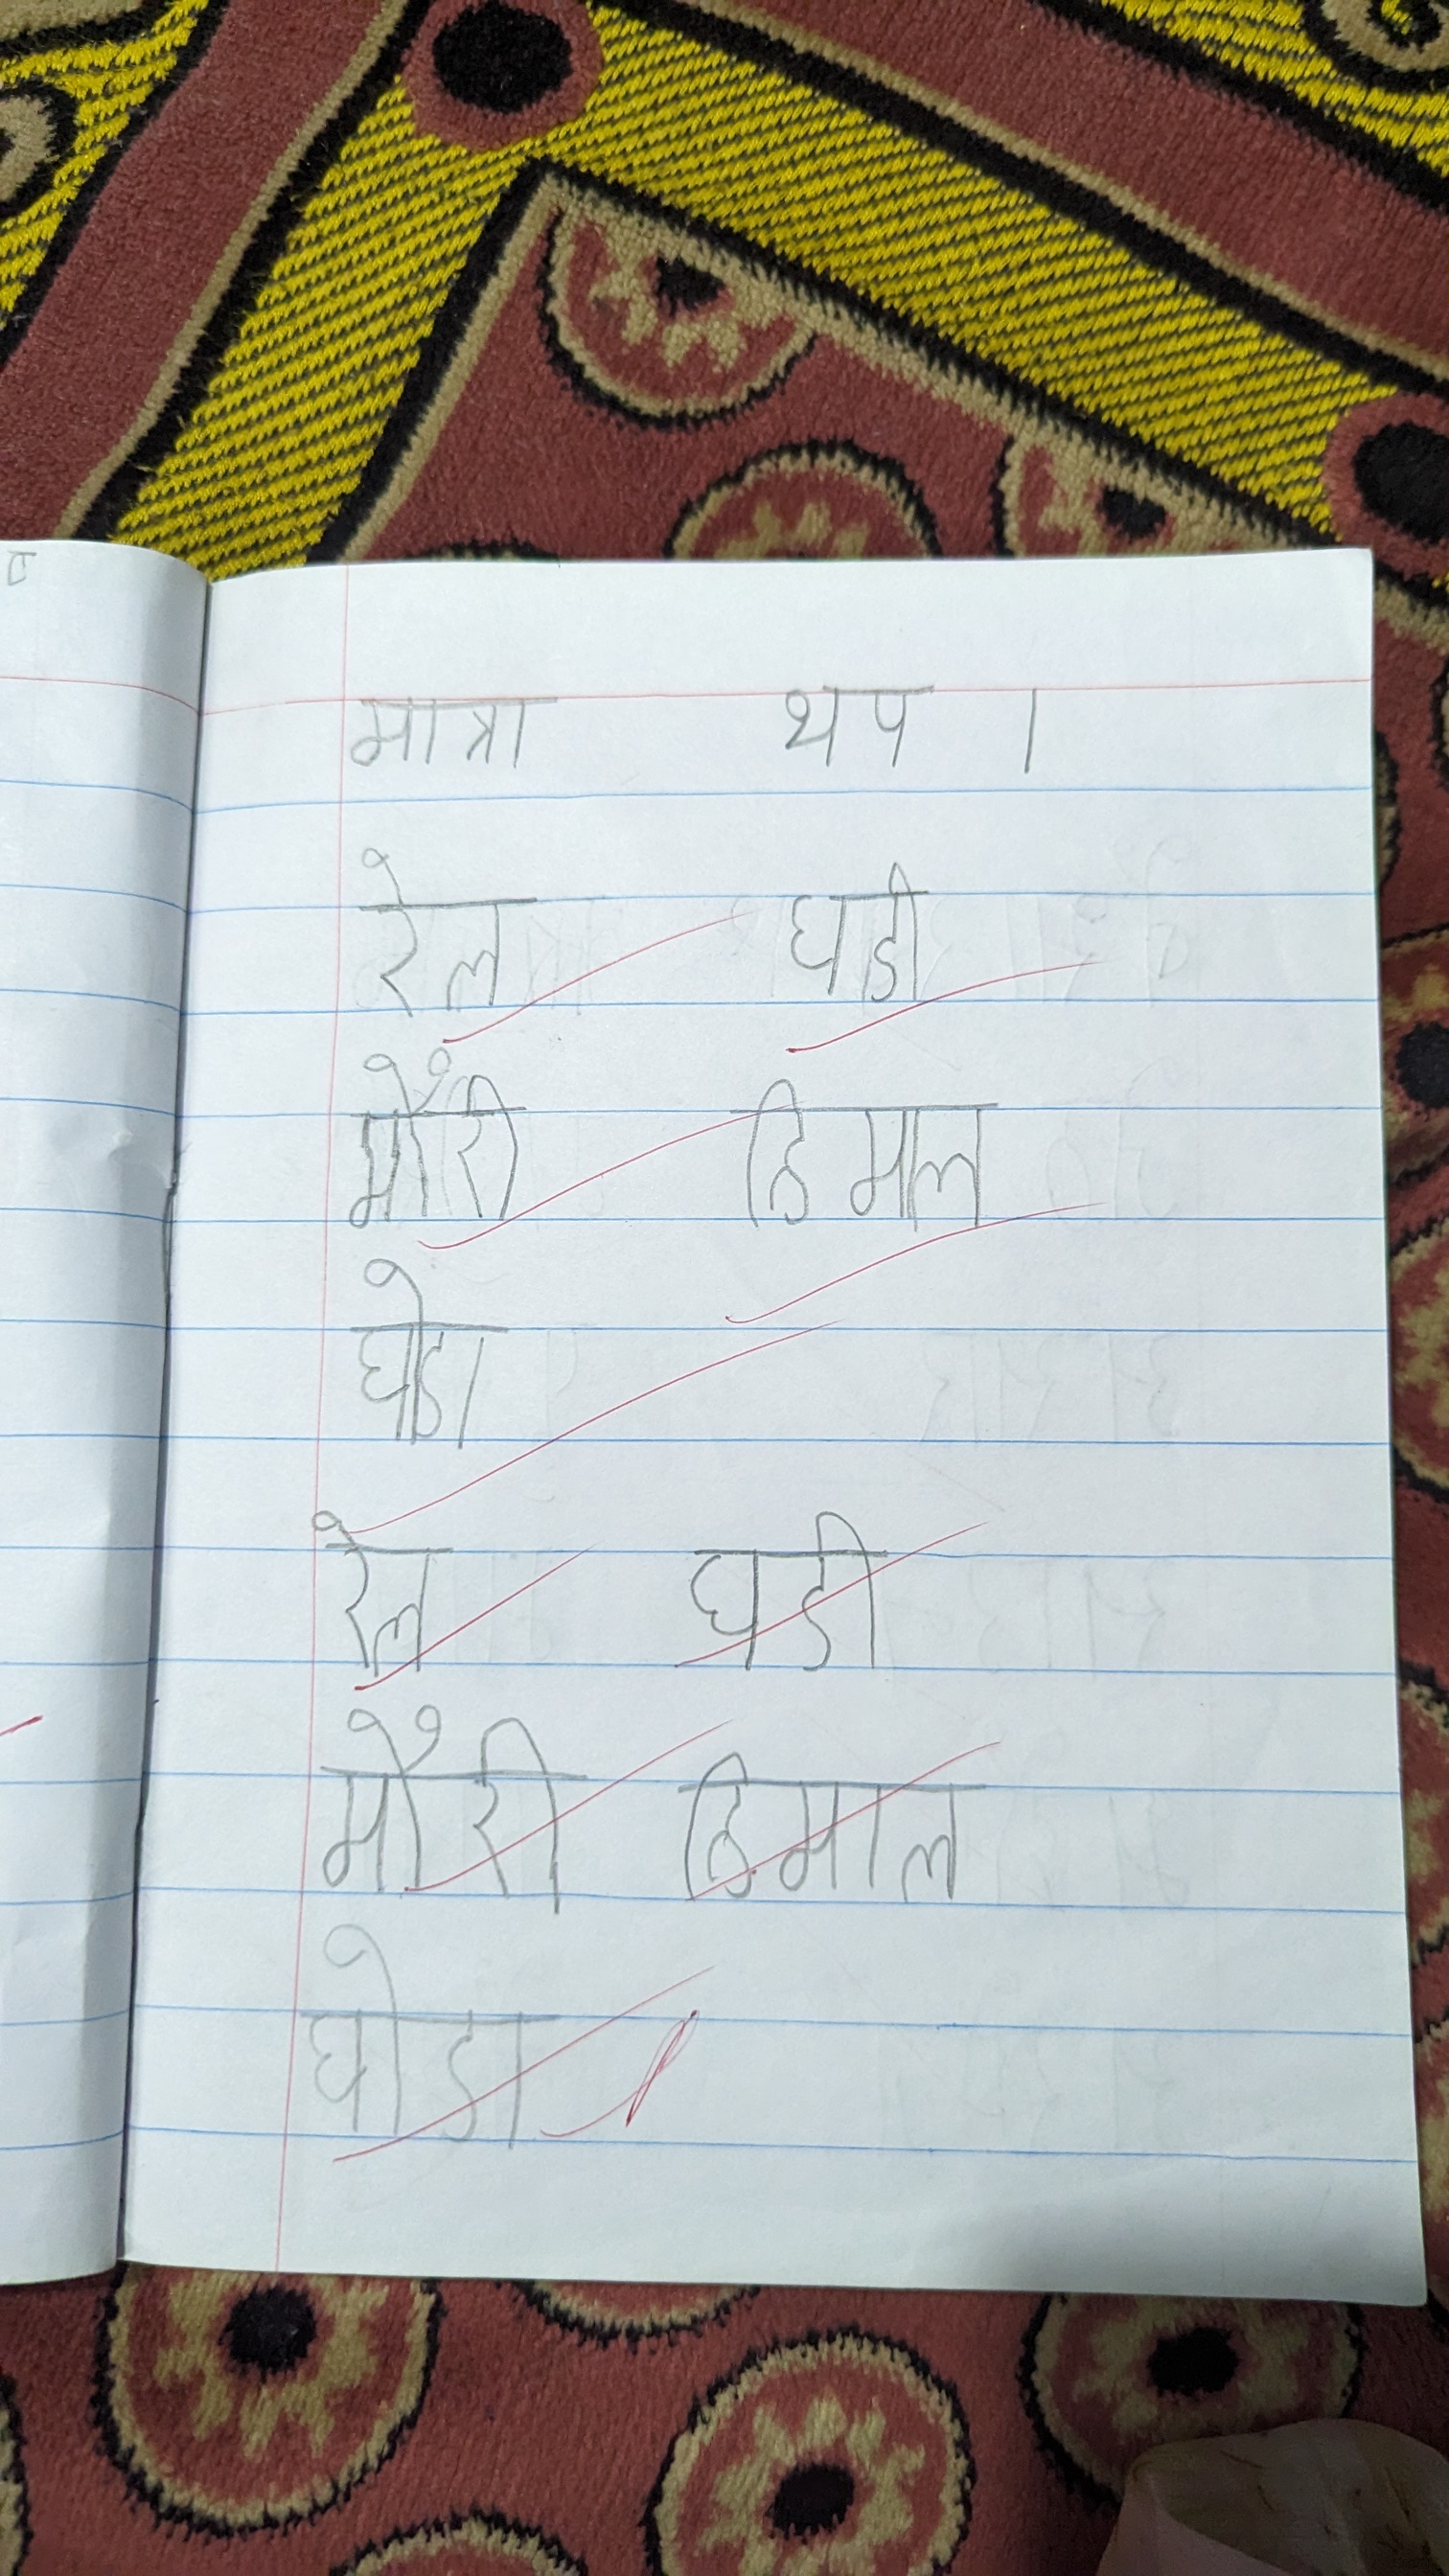 मात्रा थप ।
रेल घडी
मौरी हिमाल
घोडा
रेल घडी
मौरी हिमाल
घोडा